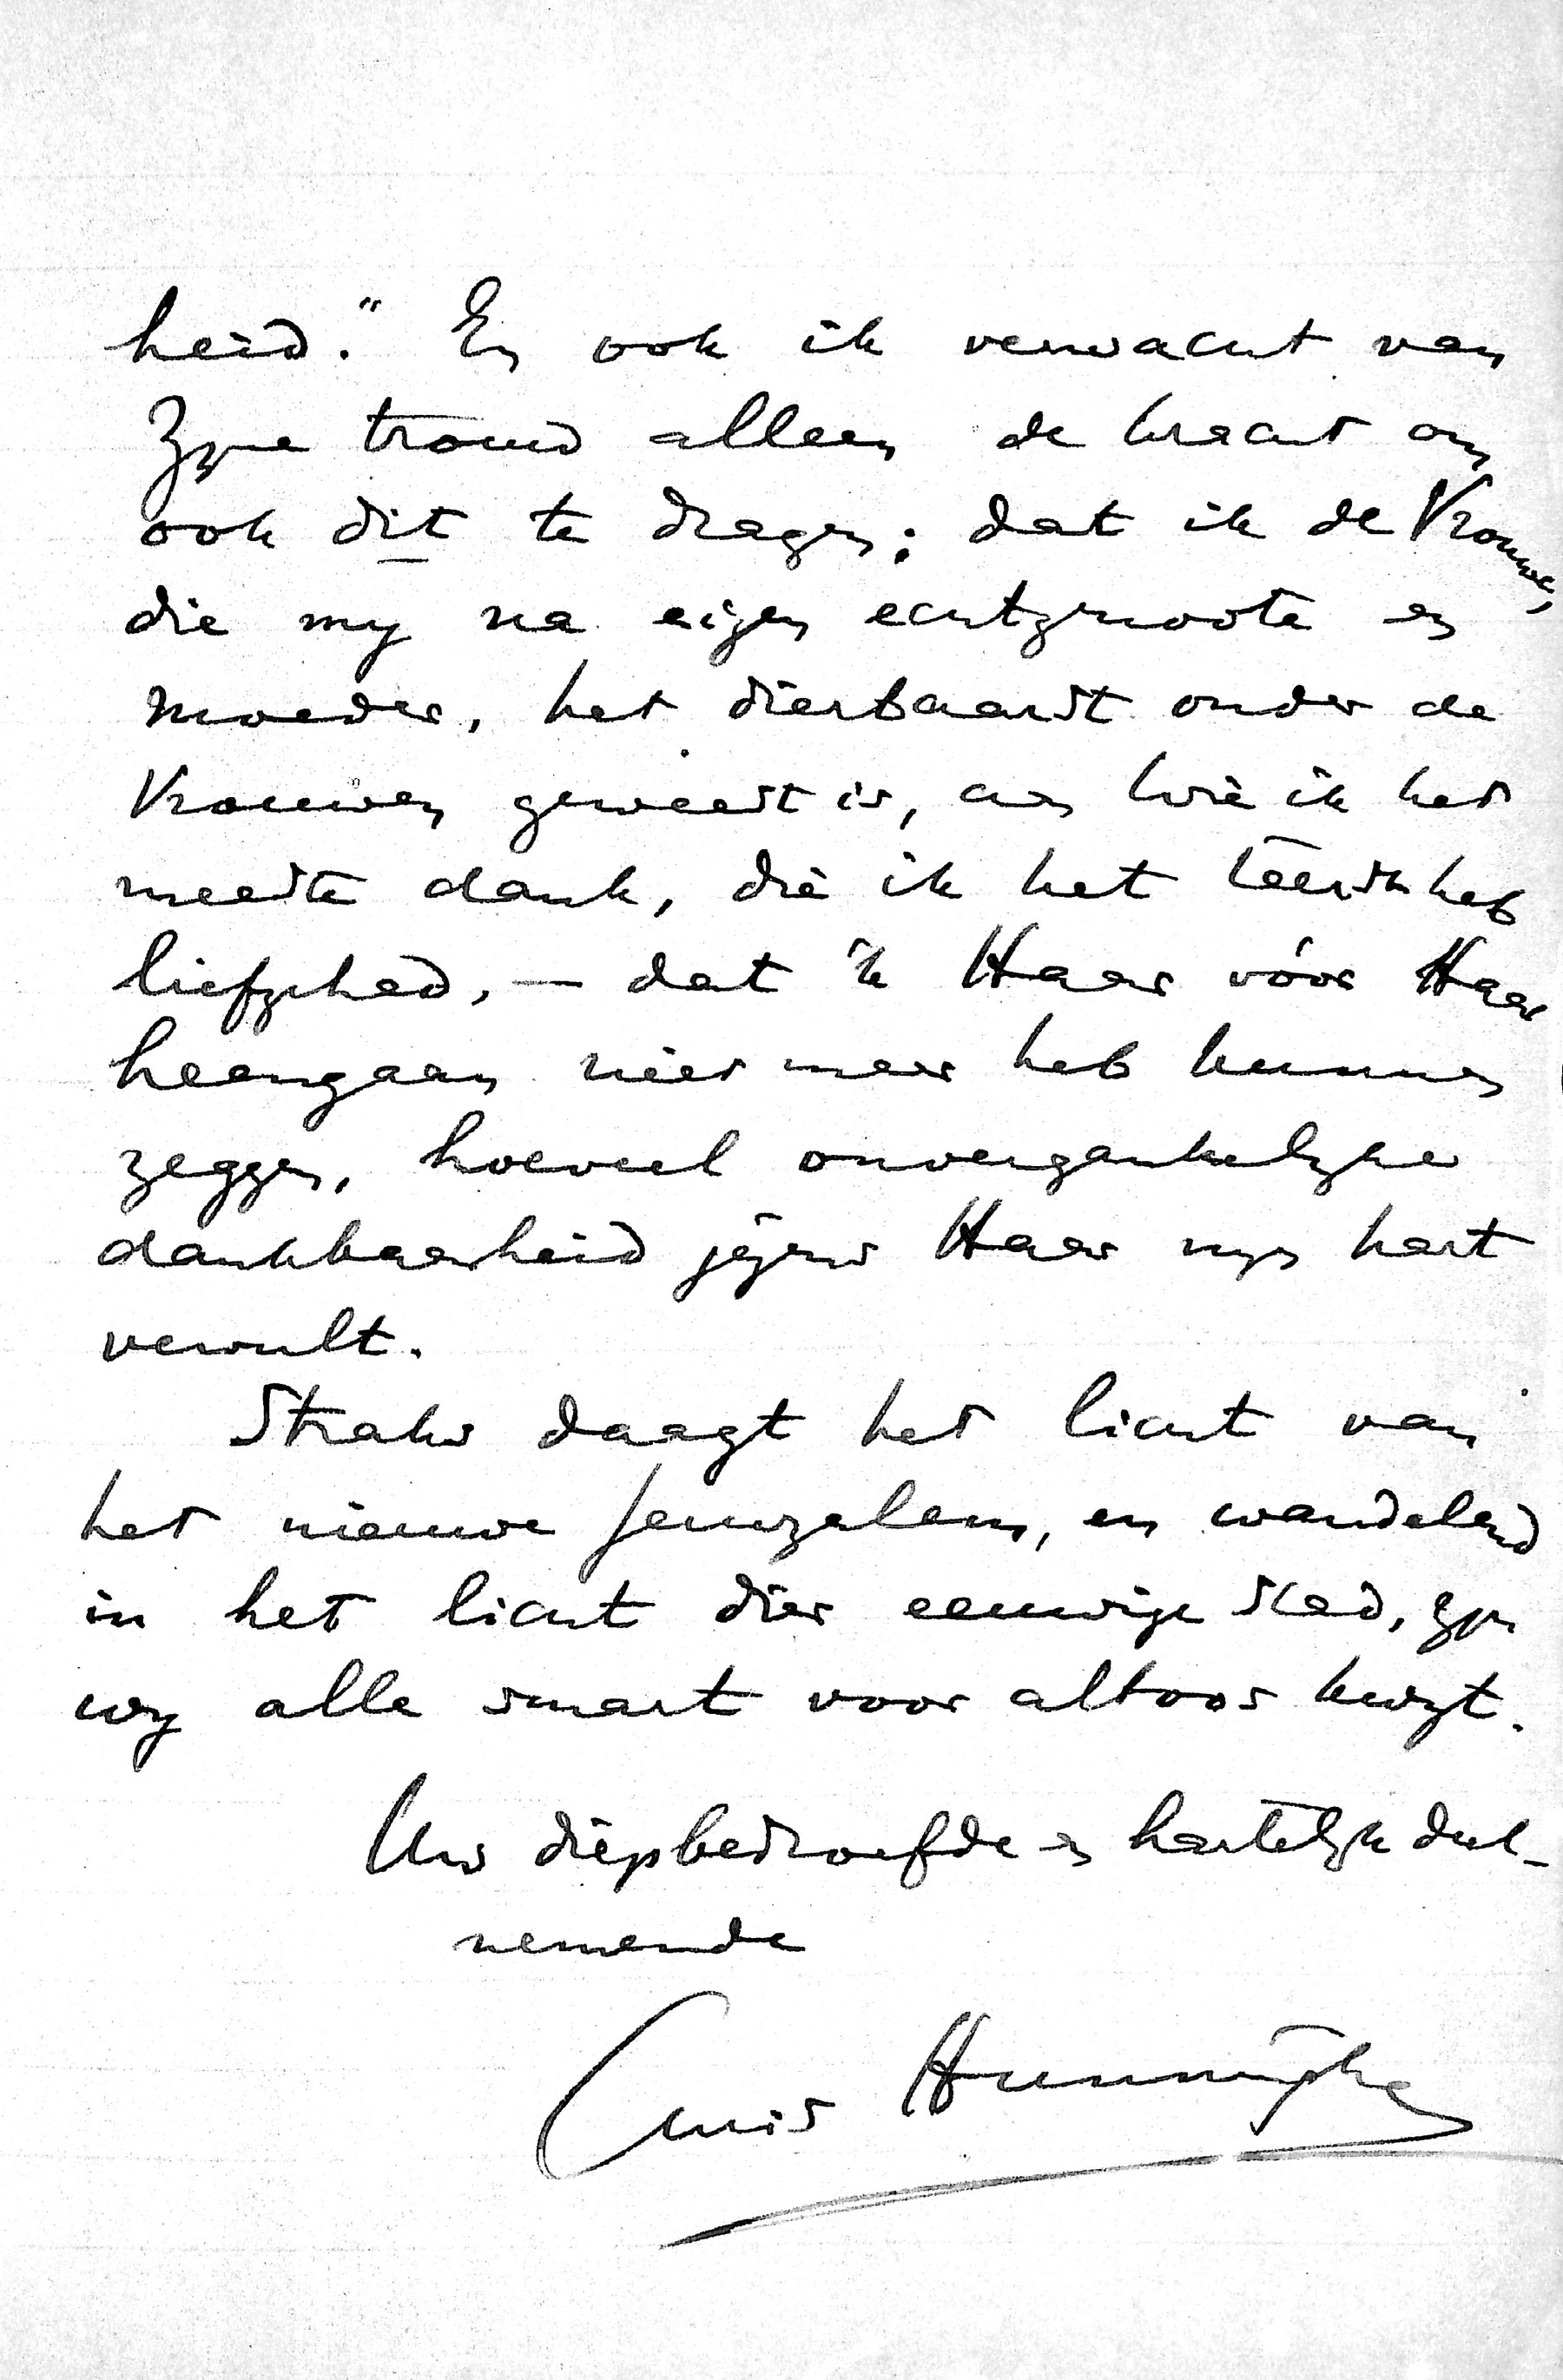 heid." En ook ik verwacht van
Zijne trouw alleen de kracht om
ook dit te dragen; dat ik de Vrouwe,
die mij na eigen echtgenoote en
moeder, het dierbaarst onder de
Vrouwen geweest is, aan wie ik het
meeste dank, die ik het teerste heb
liefgehad, — dat 'k Haar vóór Haar
heengaan niet meer heb kunnen
zeggen, hoeveel onvergankelijke
dankbaarheid jegens Haar mijn hart
vervult.
Straks daagt het licht van
het nieuwe Jeruzalem, en wandelend
in het licht dier eeuwige stad, zijn
wij alle smart voor altoos kwijt.
Uw diepbedroefde en hartelijk deel-
nemende